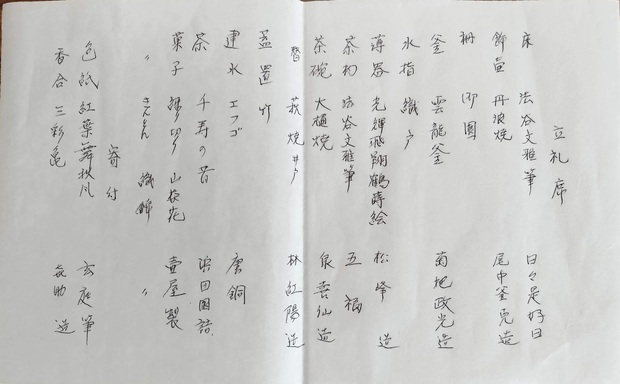 立礼席
床 法谷文雅筆 日々是好日
飾壷 丹波焼 尾中釜兎造
棚 御園
釜 雲龍釜 菊地政光造
水指 織部
薄器 光輝飛翔鶴蒔絵 松峰造
茶杓 法谷文雅筆 五福
茶碗 大樋焼 泉喜仙造
替 萩焼井戸 林紅陽造
蓋置 竹
建水 エフゴ 唐銅
茶 千寿の昔 浜田園詰
菓子 練り切り 山茶花 壷屋製
〃 きんとん 織錦 〃
寄付
色紙 紅葉舞秋風 玄庭筆
香合 三彩亀 造